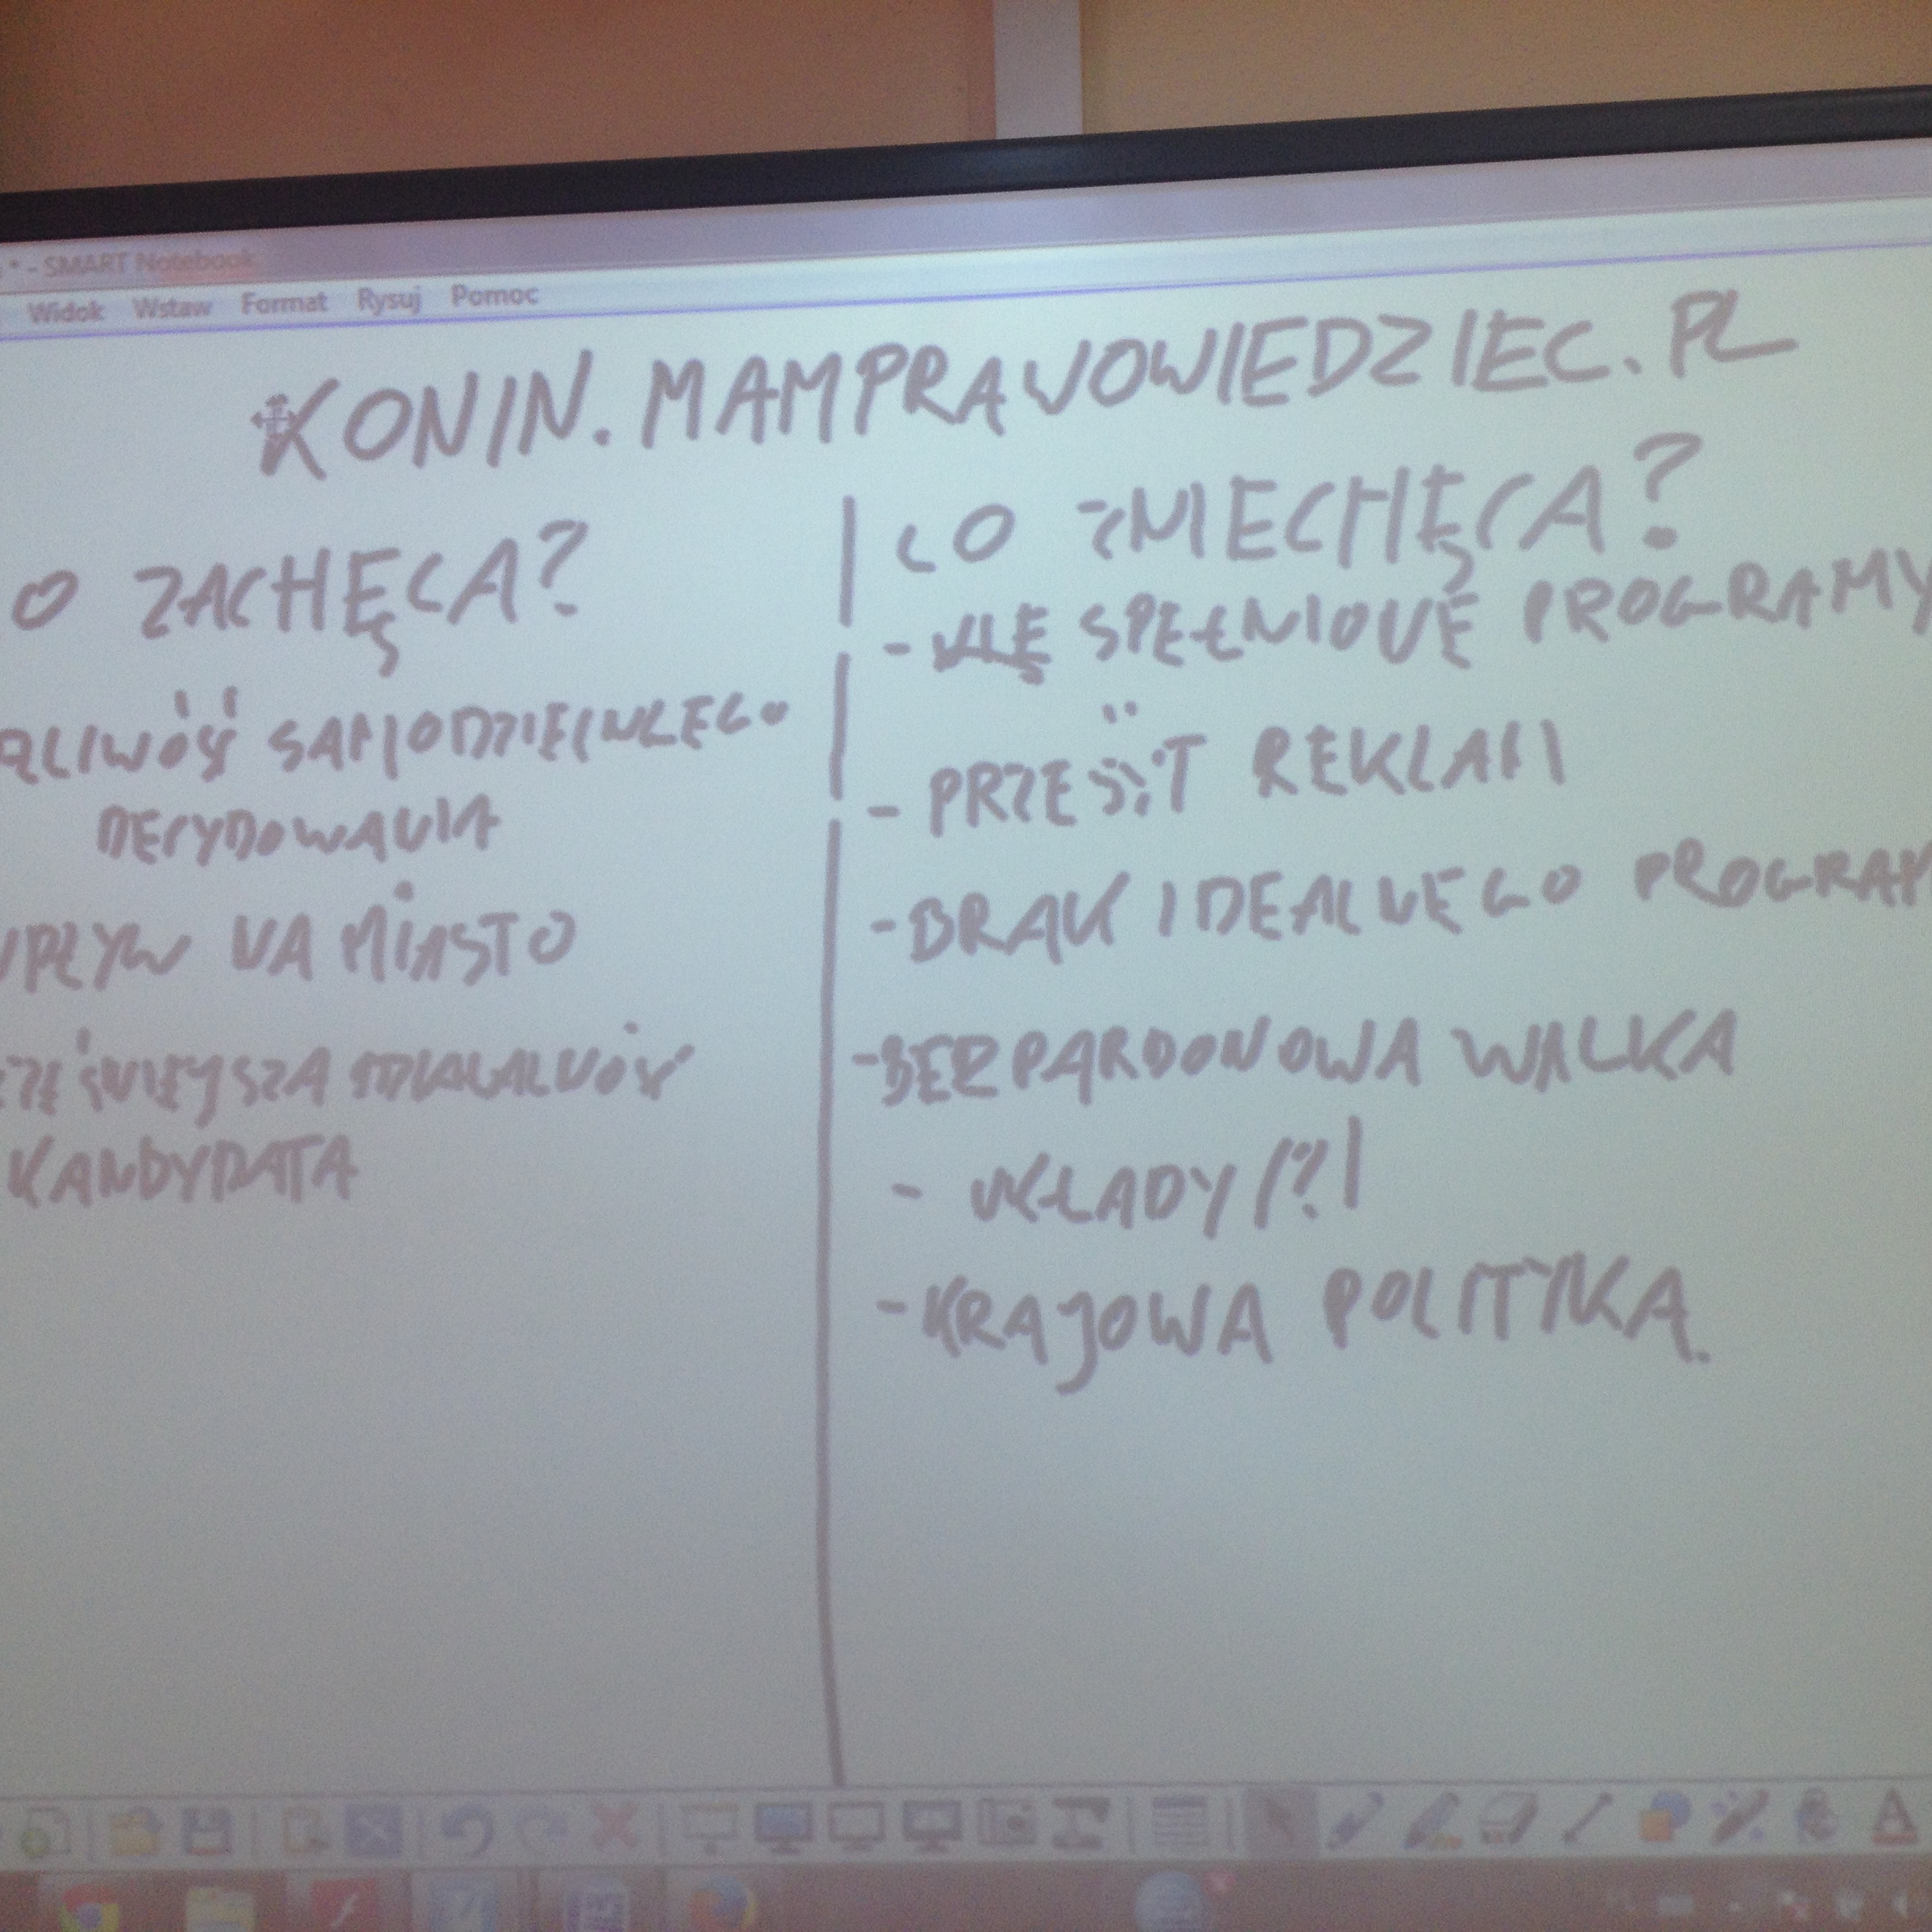 * - SMART Notebook
Widok Wstaw Format Rysuj Pomoc
KONIN.MAMPRAWOWIEDZIEC.PL
O ZACHĘCA?
SAMODZIELNEGO
DECYDOWANIA
WPŁYW NA MIASTO
KANDYDATA
CO ZNIECHĘCA?
- SPEŁNIONE PROGRAMY
- PRZESYT REKLAM
- BRAK IDEALNEGO PROGRAM
- BEZPARDONOWA WALKA
- UKŁADY (?)
- KRAJOWA POLITYKA.